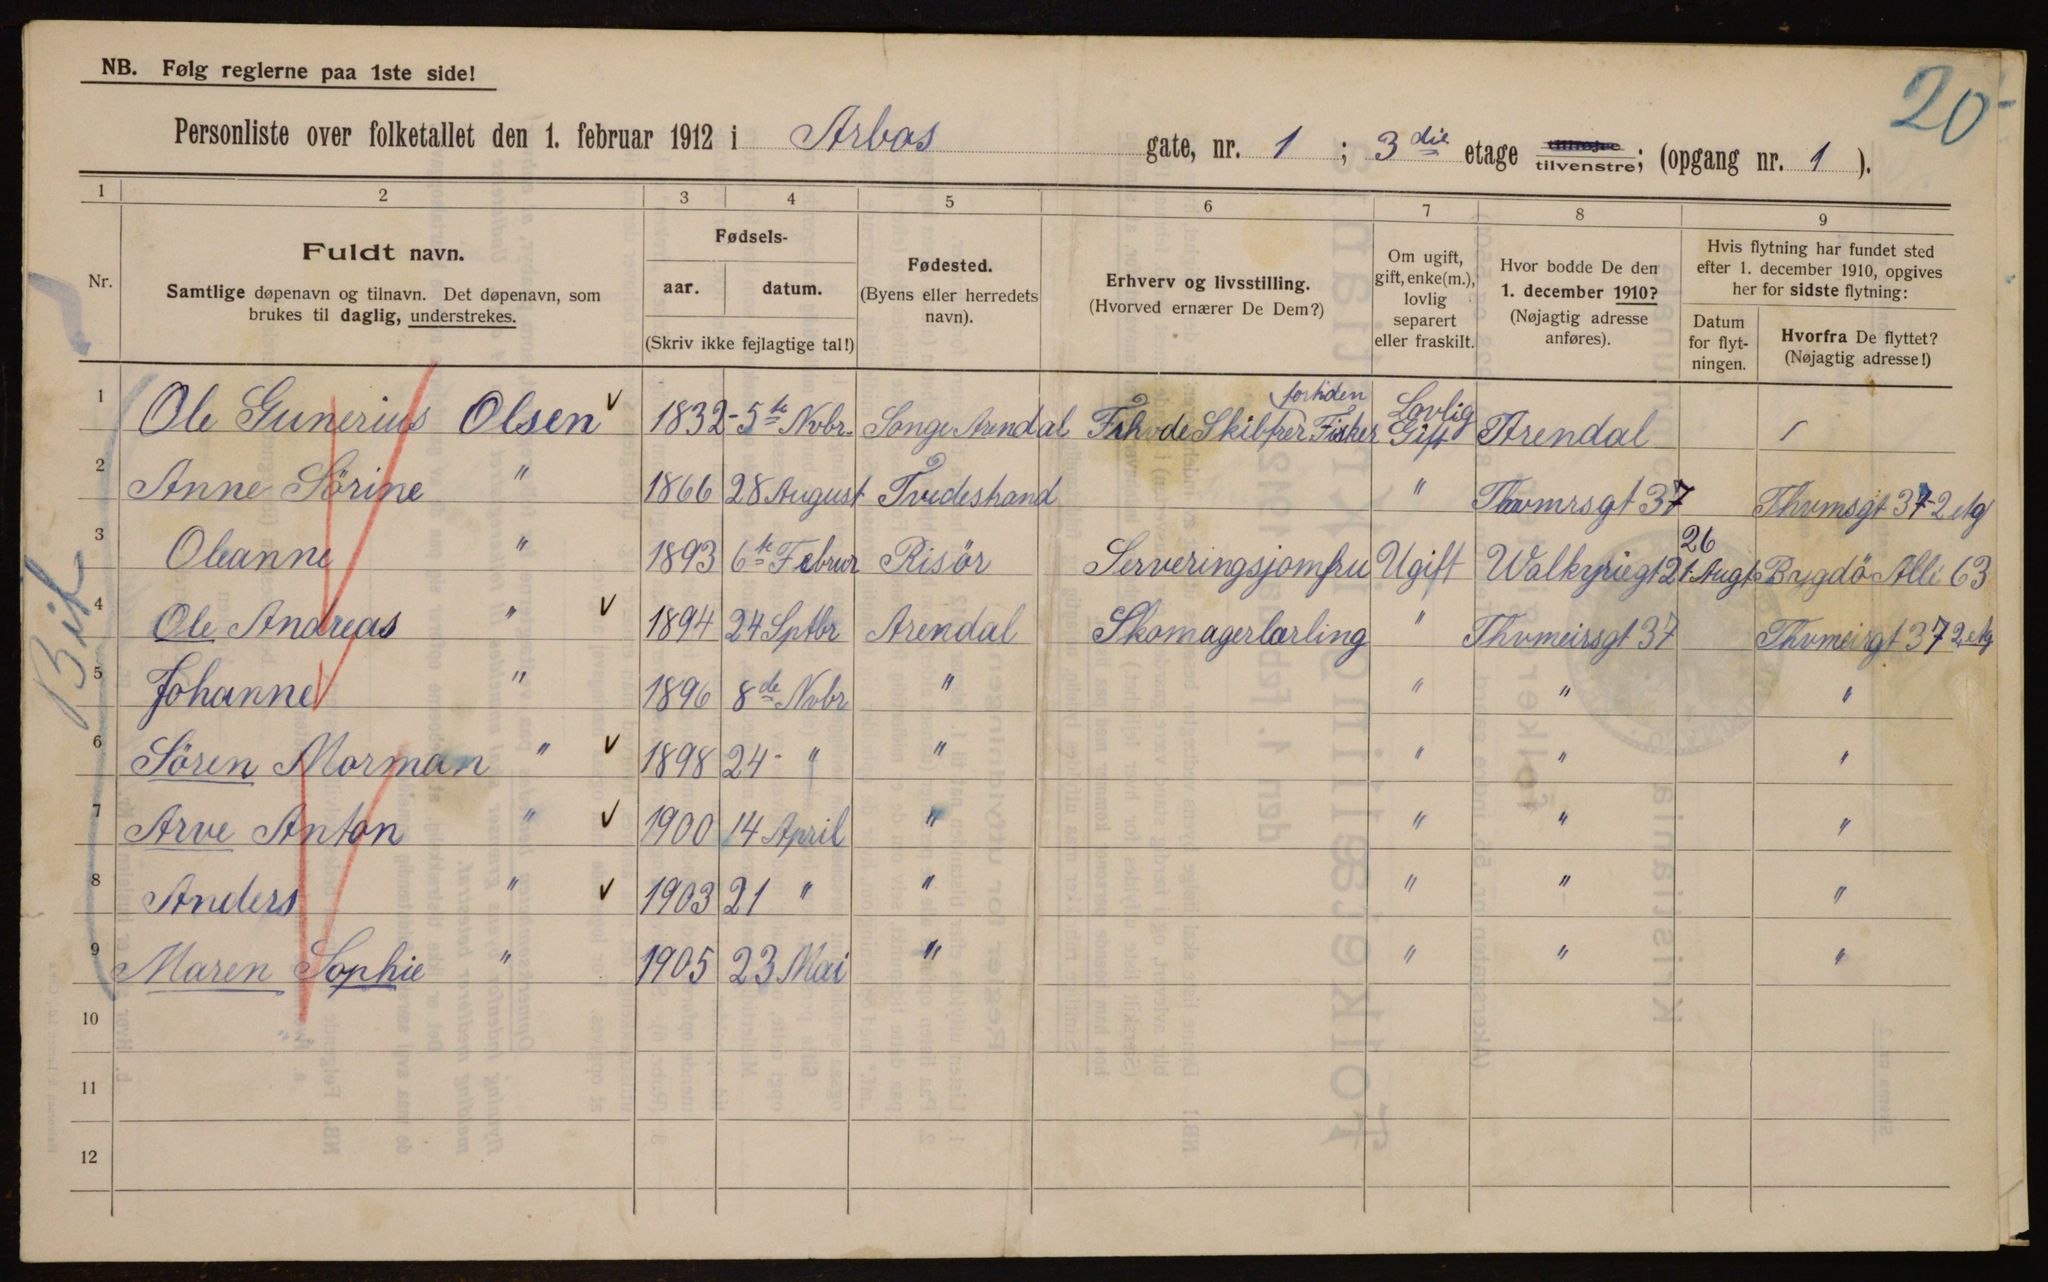 NB. Følg reglerne paa 1ste side!
20
Personliste over folketallet den 1. februar 1912 i Arbos gate, nr. 1 ; 3die etage tilhøjre tilvenstre; (opgang nr. 1 ).
1 2 3 4 5 6 7 8 9
Nr.
Fuldt navn.
Samtlige døpenavn og tilnavn. Det døpenavn, som
brukes til daglig, understrekes.
Fødsels-
aar. datum.
(Skriv ikke fejlagtige tal!)
Fødested.
(Byens eller herredets
navn).
Erhverv og livsstilling.
(Hvorved ernærer De Dem?)
Om ugift,
gift, enke(m.),
lovlig
separert
eller fraskilt.
Hvor bodde De den
1. december 1910?
(Nøjagtig adresse
anføres).
Hvis flytning har fundet sted
efter 1. december 1910, opgives
her for sidste flytning:
Datum
for flyt-
ningen.
Hvorfra De flyttet?
(Nøjagtig adresse!)
1 Ole Gunerius Olsen 1832 - 5te Nvbr. Songe Arendal Fhvde Skibfrer fortiden Fisker Lovlig Gift Arendal
2 Anne Sörine " 1866 28 August Tvedestrand " Thvmrsgt 37 Thvmsgt 37-2 etg
3 Oleanne " 1893 6te Februr Risör Serveringsjomfru Ugift Walkyriegt 21 26 Augt Bygdö Alle 63
4 Ole Andreas " 1894 24 Sptbr Arendal Skomagerlærling " Thvmeirsgt 37 Thvmeirgt 37 2 etg
5 Johanne " 1896 8de Nvbr " " " "
6 Sören Morman " 1898 24 - " " " " "
7 Arve Anton " 1900 14 April " " " "
8 Anders " 1903 21 " " " " "
9 Maren Sophie " 1905 23 Mai " " " "
10
11
12